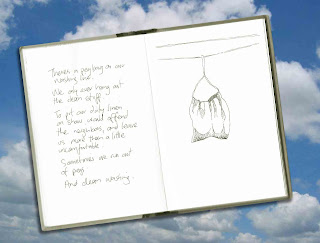 There's a peg bag on our
washing line.
We only ever hang out
the clean stuff.
To put our dirty linen
on show would offend
the neighbours, and leave
us more than a little
uncomfortable.
Sometimes we run out
of pegs.
And clean washing.